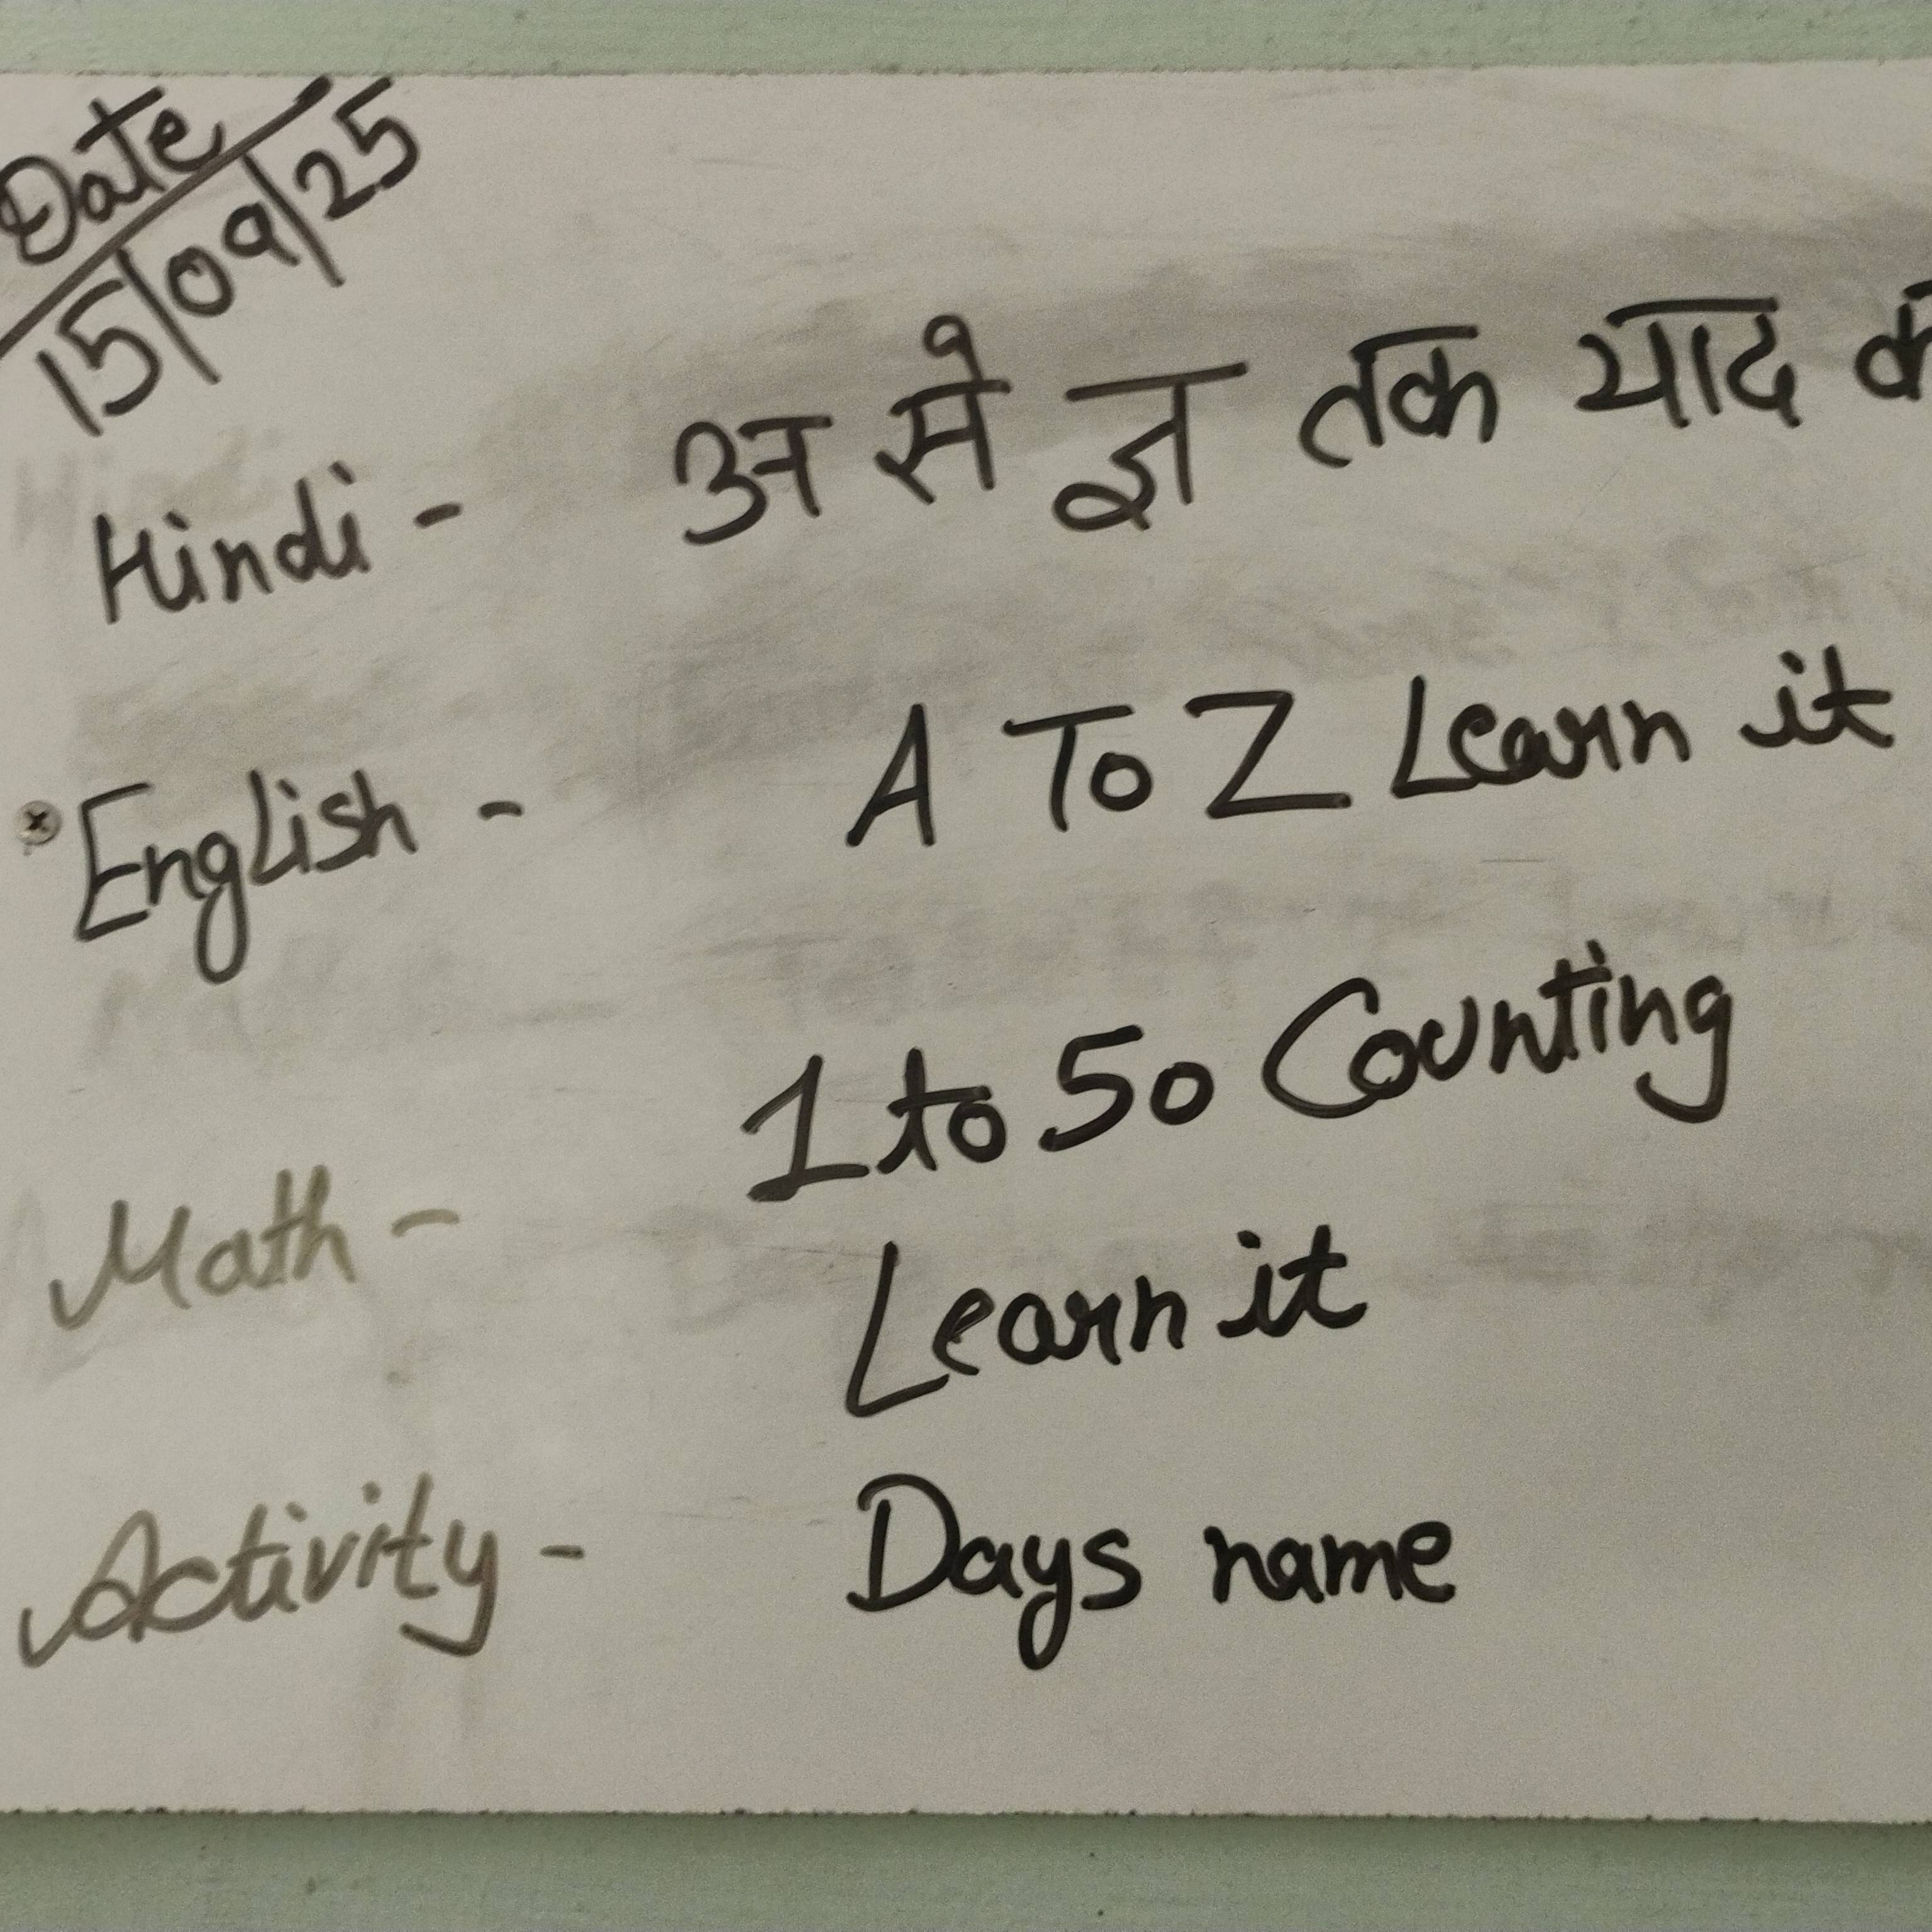 Date
15/09/25
Hindi - अ से ज्ञ तक याद
English - A To Z Learn it
Math - 1 to 50 Counting
Learn it
Activity - Days name